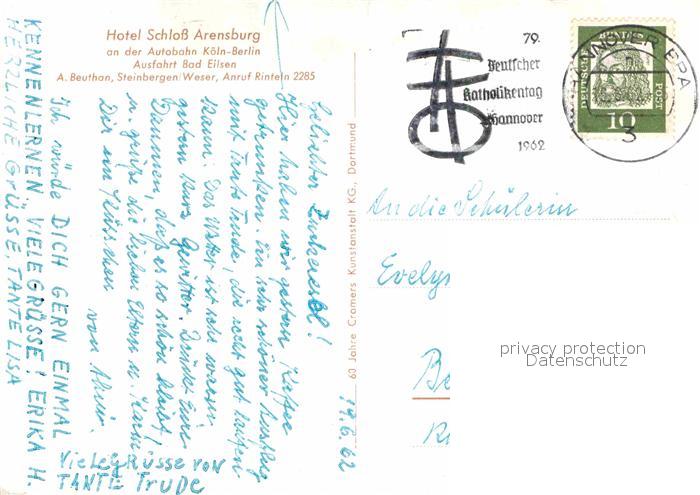 Hotel Schloß Arensburg
an der Autobahn Köln-Berlin
Ausfahrt Bad Eilsen
A. Beuthan, Steinbergen/Weser, Anruf Rinteln 2285
79.
Deutscher
Katholikentag
Hannover
1962
HANNOVER EPA
3
DEUTSCHE BUNDESPOST
10
19.6.62
Geliebter
Hier haben wir gestern Kaffee
getrunken. Ein sehr schöner Ausflug
mit Tante Trude, die recht gut laufen
kann. Das Wetter ist sehr warm,
guten kurze Gewitter. Drückt Eure
Daumen, daß es so schön bleibt,
u. grüße die lieben Eltern u. Karin
Dir ein Küsschen von
Ich würde DICH GERN EINMAL
KENNENLERNEN, VIELE GRÜSSE! ERIKA H.
HERZLICHE GRÜSSE, TANTE LISA
Viele Grüsse von
TANTE TRUDE
60 Jahre Cramers Kunstanstalt KG., Dortmund
An die Schülerin
Evelyn
Be
privacy protection
Datenschutz